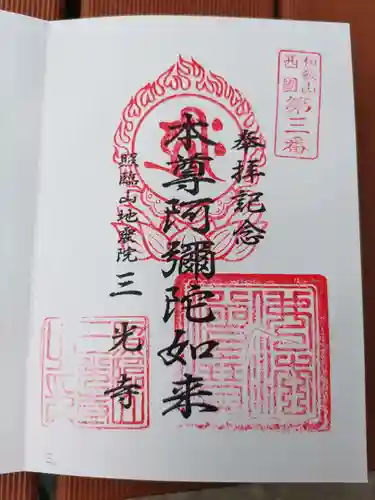 仙叡山
西國
第三番
奉拝記念
本尊阿彌陀如来
照臨山地蔵院
三光寺
三